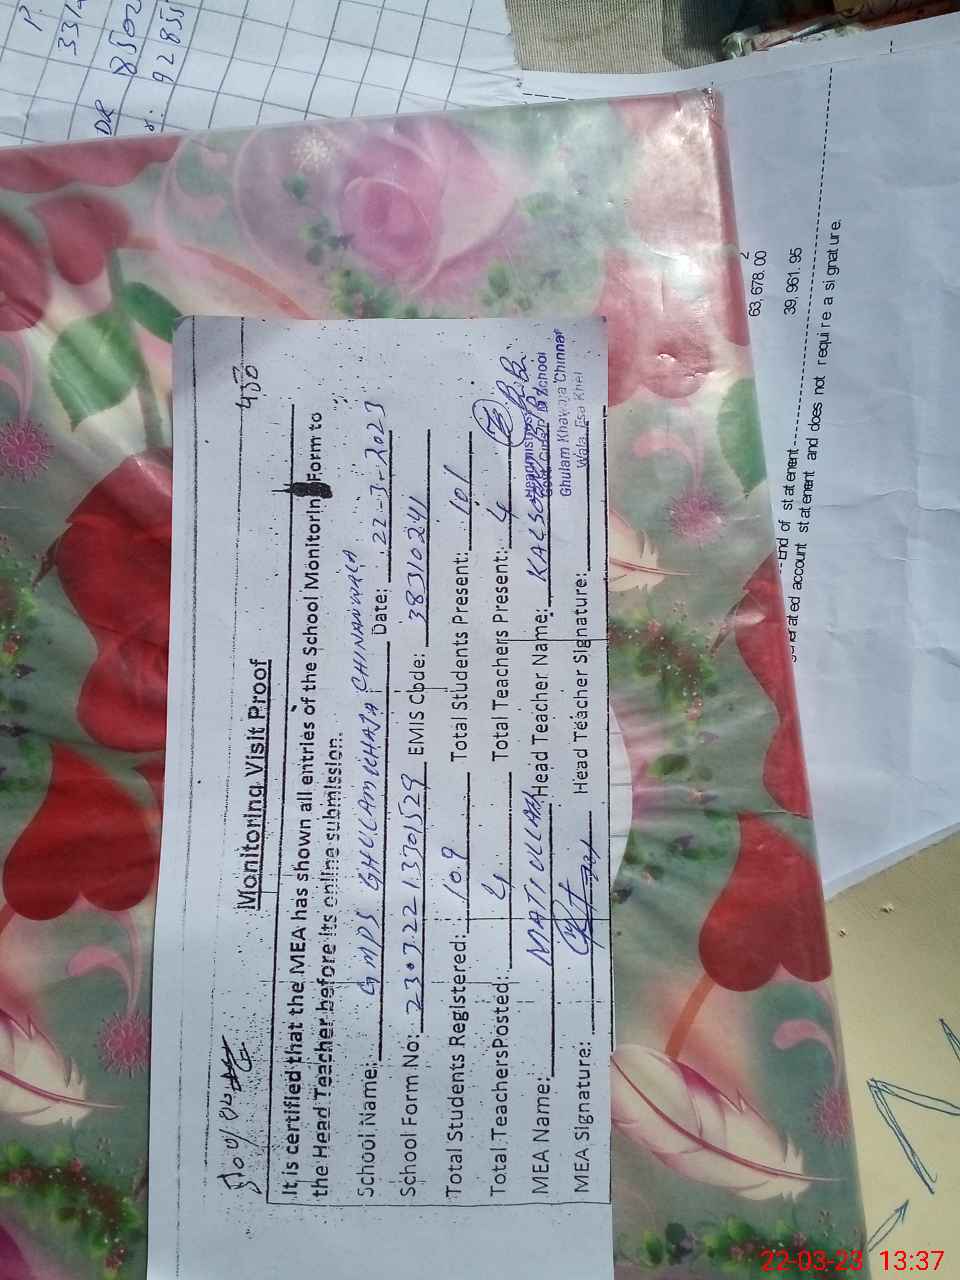 450
Monitoring Visit Proof
It is certified that the MEA has shown all entries of the School Monitoring Form to
the Head Teacher before its online submission.
School Name: GMPS GHULAM KHAJA CHINANWALA Date: 22-3-2023
School Form No: 230722 13701529 EMIS Code: 38310241
Total Students Registered: 109 Total Students Present: 101
Total Teachers Posted: 4 Total Teachers Present: 4
MEA Name: MATI ULLAH Head Teacher Name: KALSOOM BiBi
MEA Signature: Head Teacher Signature:
Headmistress
Govt. Girls School
Ghulam Khawaja Chinnar
Wala, Esa Khel
2
63,678.00
39,961.95
--End of statement
generated account statement and does not require a signature.
P.
3314
DR 8502
92855
22-03-23 13:37